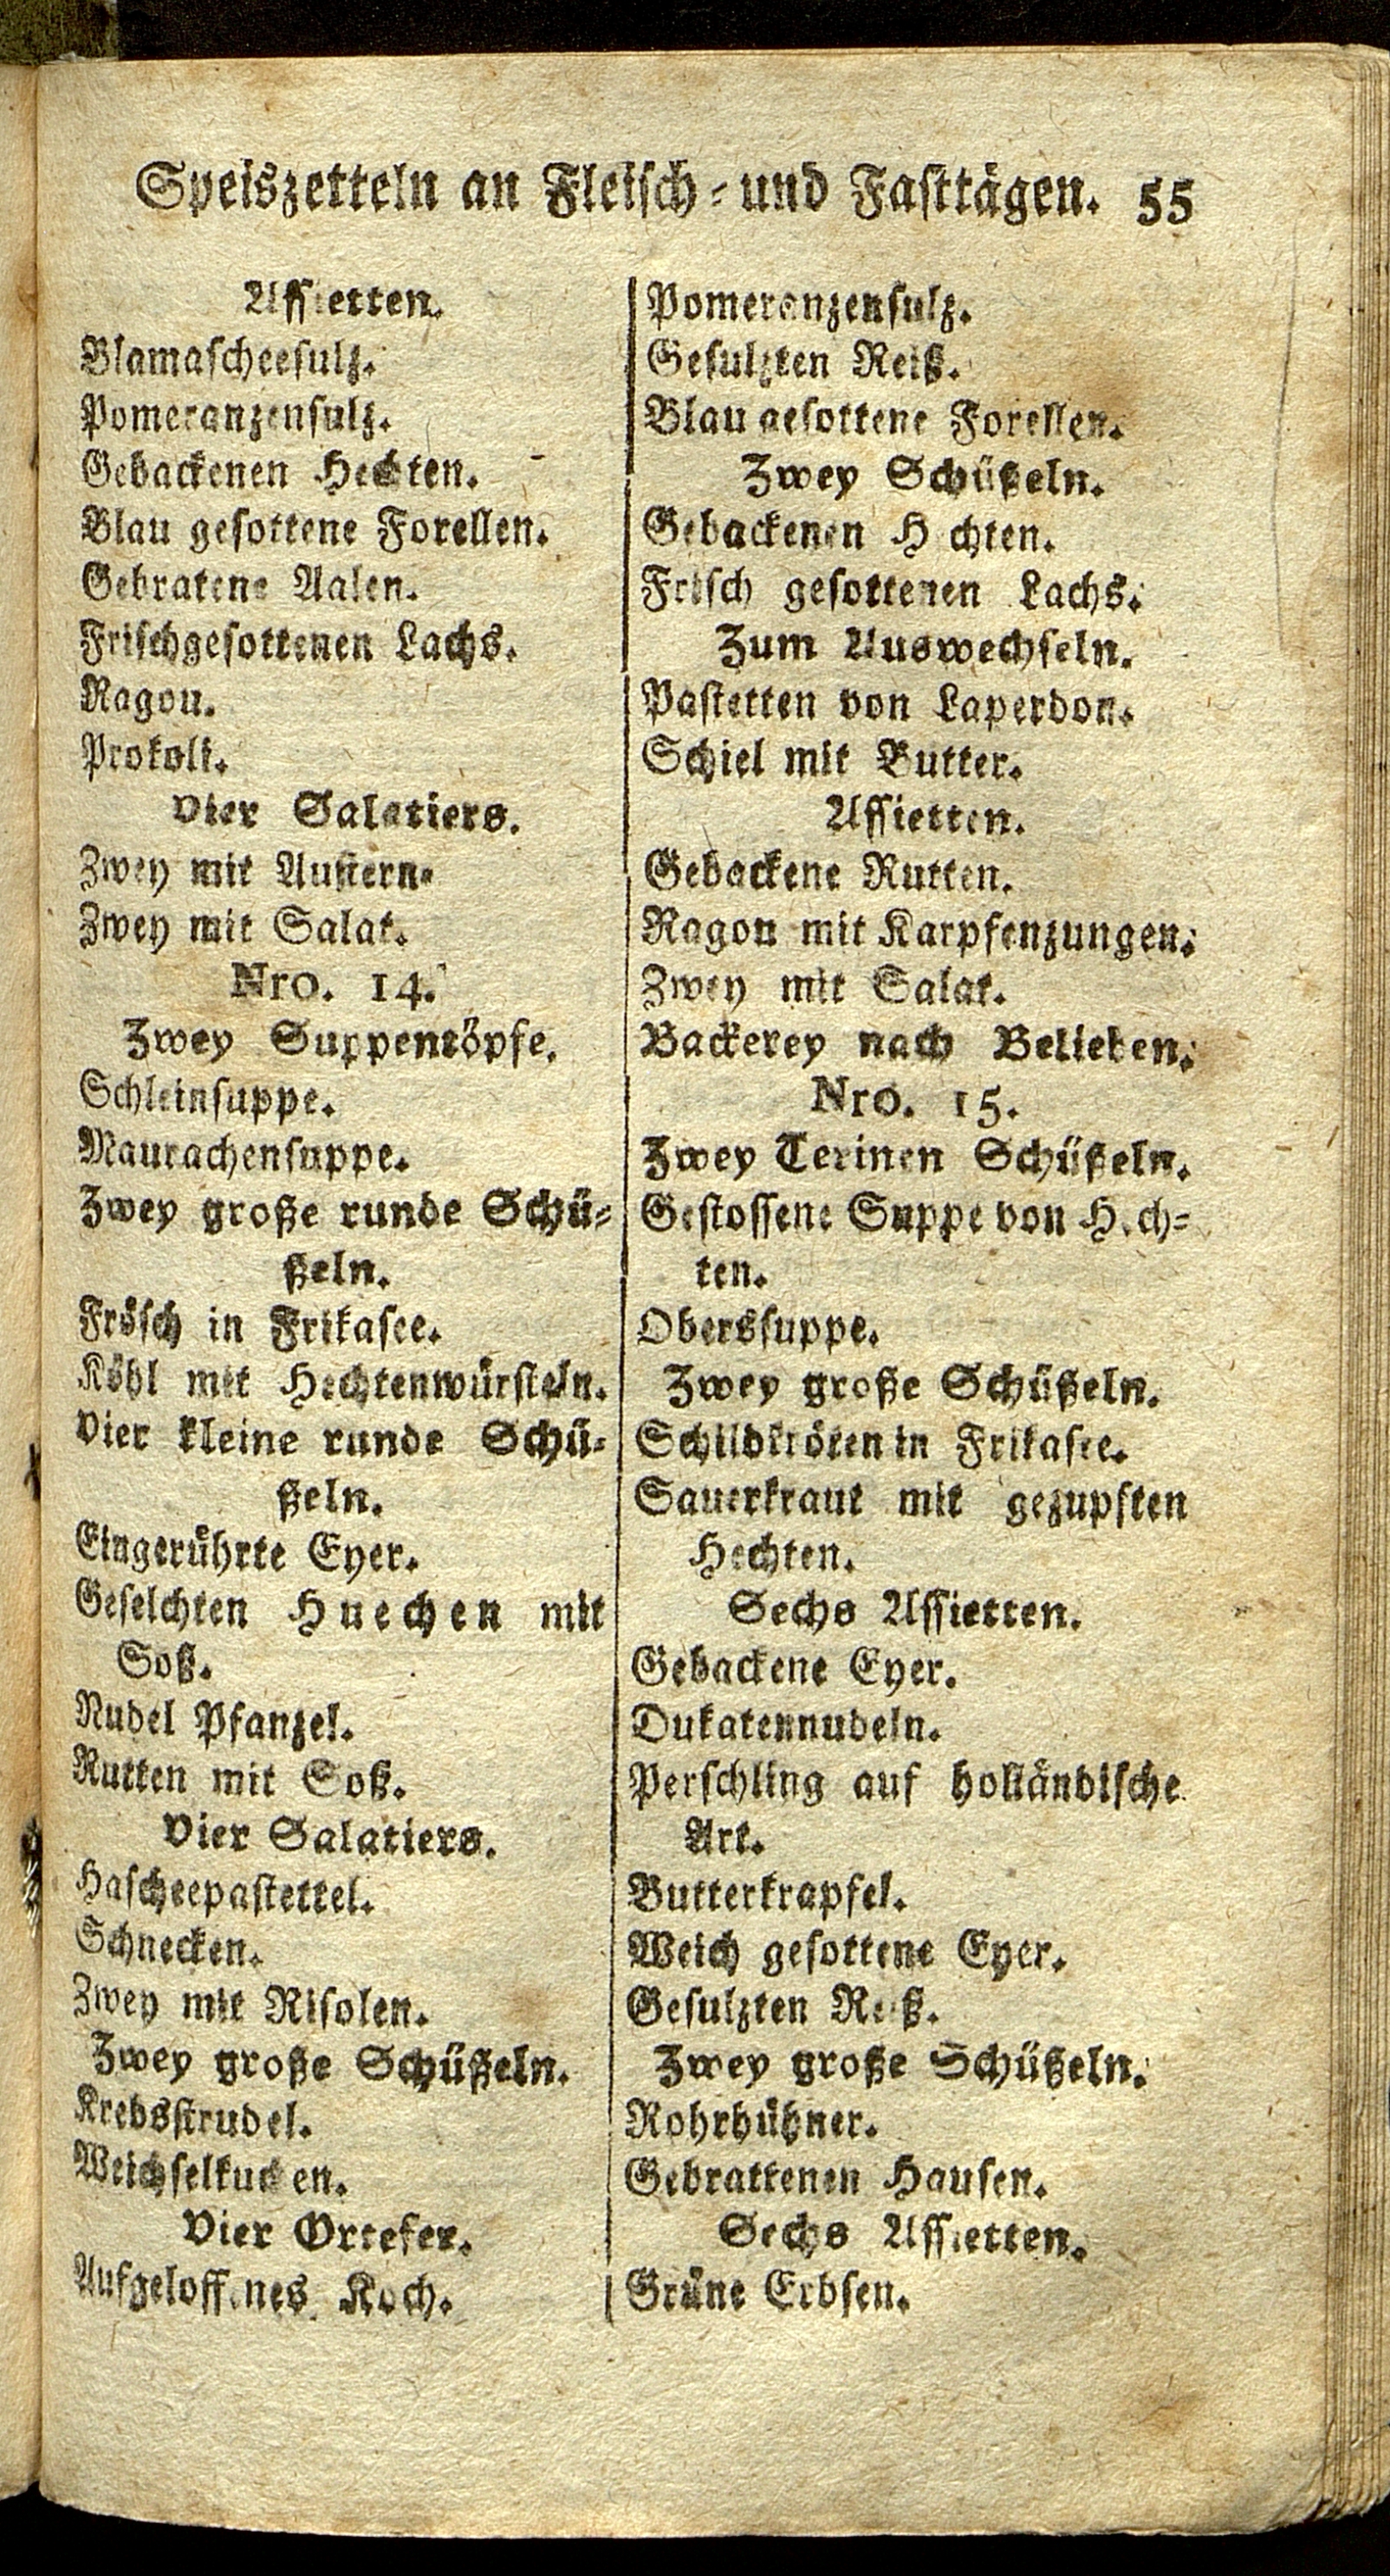 Speiszetteln an Fleisch- und Fasttägen. 55
Assietten.
Blamascheesulz.
Pomeranzensulz.
Gebackenen Hechten.
Blau gesottene Forellen.
Gebratene Aalen.
Frischgesottenen Lachs.
Ragou.
Prokoli.
Vier Salatiers.
Zwey mit Austern.
Zwey mit Salat.
Nro. 14.
Zwey Suppentöpfe.
Schleinsuppe.
Maurachensuppe.
Zwey große runde Schü-
ßeln.
Frösch in Frikasee.
Köhl mit Hechtenwürsteln.
Vier kleine runde Schü-
ßeln.
Eingerührte Eyer.
Geselchten Huechen mit
Soß.
Nudel Pfanzel.
Rutten mit Soß.
Vier Salatiers.
Hascheepastettel.
Schnecken.
Zwey mit Risolen.
Zwey große Schüßeln.
Krebsstrudel.
Weichselkuchen.
Vier Ortefer.
Aufgeloffenes Koch.
Pomeranzensulz.
Gesulzten Reiß.
Blau gesottene Forellen.
Zwey Schüßeln.
Gebackenen Hechten.
Frisch gesottenen Lachs.
Zum Auswechseln.
Pastetten von Laperdon.
Schiel mit Butter.
Assietten.
Gebackene Rutten.
Ragou mit Karpfenzungen.
Zwey mit Salat.
Backerey nach Belieben.
Nro. 15.
Zwey Terinen Schüßeln.
Gestossene Suppe von Hech-
ten.
Oberssuppe.
Zwey große Schüßeln.
Schildkröten in Frikasee.
Sauerkraut mit gezupften
Hechten.
Sechs Assietten.
Gebackene Eyer.
Dukatennudeln.
Perschling auf holländische
Art.
Butterkrapfel.
Weich gesottene Eyer.
Gesulzten Reiß.
Zwey große Schüßeln.
Rohrhühner.
Gebrattenen Hausen.
Sechs Assietten.
Grüne Erbsen.